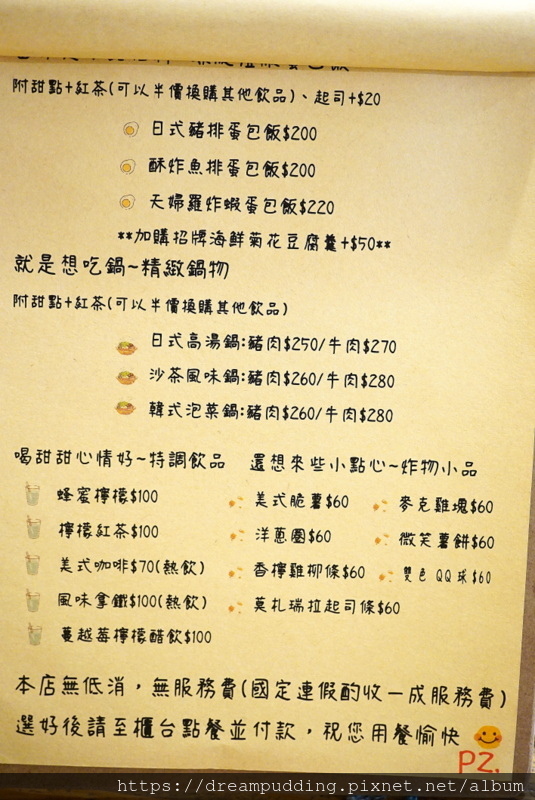 附甜點+紅茶(可以半價換購其他飲品)、起司+$20
日式豬排蛋包飯$200
酥炸魚排蛋包飯$200
天婦羅炸蝦蛋包飯$220
**加購招牌海鮮菊花豆腐羹+$50**
就是想吃鍋~精緻鍋物
附甜點+紅茶(可以半價換購其他飲品)
日式高湯鍋:豬肉$250/牛肉$270
沙茶風味鍋:豬肉$260/牛肉$280
韓式泡菜鍋:豬肉$260/牛肉$280
喝甜甜心情好~特調飲品
蜂蜜檸檬$100
檸檬紅茶$100
美式咖啡$70(熱飲)
風味拿鐵$100(熱飲)
蔓越莓檸檬醋飲$100
還想來些小點心~炸物小品
美式脆薯$60 麥克雞塊$60
洋蔥圈$60 微笑薯餅$60
香檸雞柳條$60 雙色QQ球$60
莫札瑞拉起司條$60
本店無低消，無服務費(國定連假酌收一成服務費)
選好後請至櫃台點餐並付款，祝您用餐愉快
P2.
https://dreampudding.pixnet.net/album